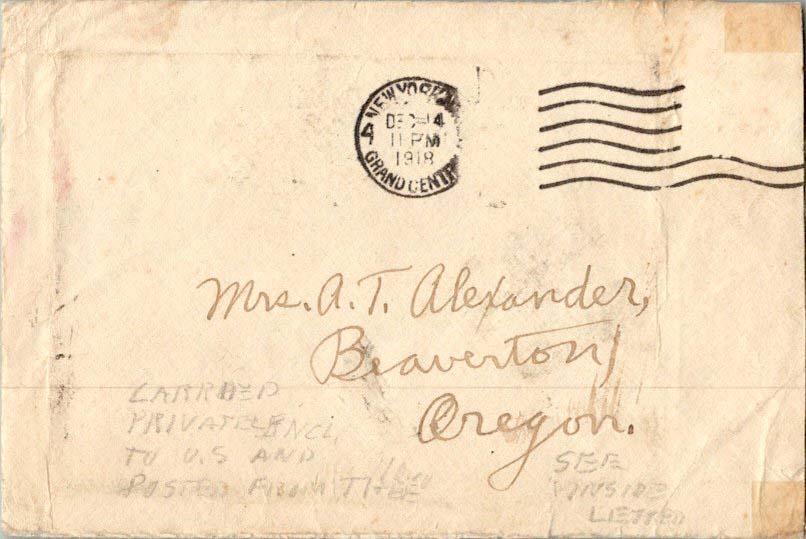 NEW YORK, N
DEC 14
11 PM
1918
GRAND CENT
Mrs. A. T. Alexander,
Beaverton,
Oregon.
CARRIED
PRIVATELY ENCL
TO U.S AND
POSTED FROM
SEE
INSIDE
LETTER